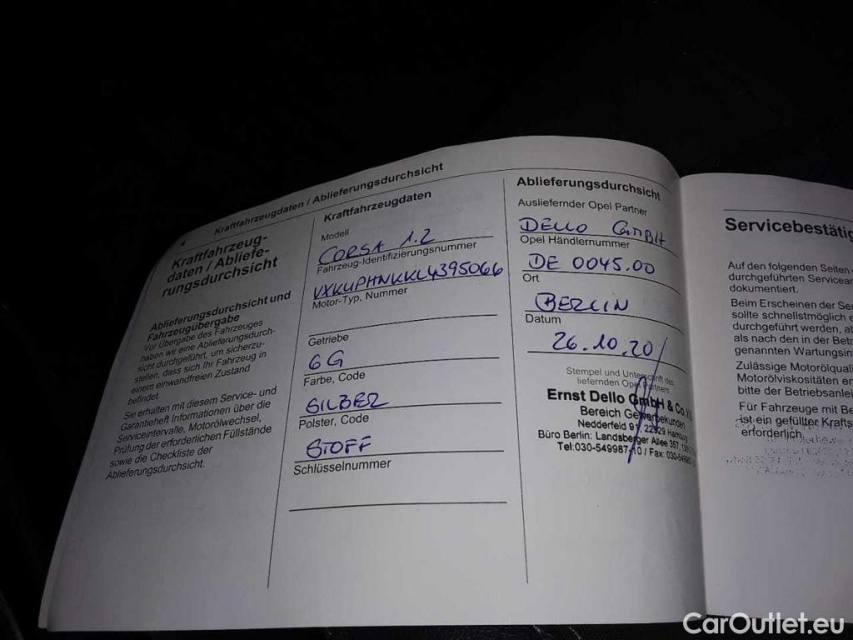 4 Kraftfahrzeugdaten / Ablieferungsdurchsicht
Kraftfahrzeug-
daten / Abliefe-
rungsdurchsicht
Ablieferungsdurchsicht und
Fahrzeugübergabe
Vor Übergabe des Fahrzeuges
haben wir eine Ablieferungsdurch-
sicht durchgeführt, um sicherzu-
stellen, dass sich Ihr Fahrzeug in
einem einwandfreien Zustand
befindet.
Sie erhalten mit diesem Service- und
Garantieheft Informationen über die
Serviceintervalle, Motorölwechsel,
Prüfung der erforderlichen Füllstände
sowie die Checkliste der
Ablieferungsdurchsicht.
Kraftfahrzeugdaten
Modell
CORSA 1.2
Fahrzeug-Identifizierungsnummer
VXKUPHNKKL4395066
Motor-Typ, Nummer
Getriebe
6G
Farbe, Code
SILBER
Polster, Code
STOFF
Schlüsselnummer
Ablieferungsdurchsicht
Ausliefernder Opel Partner
DELLO GmBH
Opel Händlernummer
DE 0045.00
Ort
BERLIN
Datum
26.10.20
Stempel und Unterschrift des
liefernden Opel Partners
Ernst Dello GmbH & Co
Bereich Gewerbekunden
Nedderfeld 91, 22529 Hamburg
Büro Berlin: Landsberger Allee 357,
Tel:030-549987-10 / Fax: 030-
Servicebestätig
Auf den folgenden Seiten
durchgeführten Servicear
dokumentiert.
Beim Erscheinen der Se
sollte schnellstmöglich e
durchgeführt werden, a
als nach den in der Bet
genannten Wartungsin
Zulässige Motorölqual
Motorölviskositäten e
bitte der Betriebsanlei
Für Fahrzeuge mit Be
ist ein gefüllter Krafts
erforderlich.
CarOutlet.eu